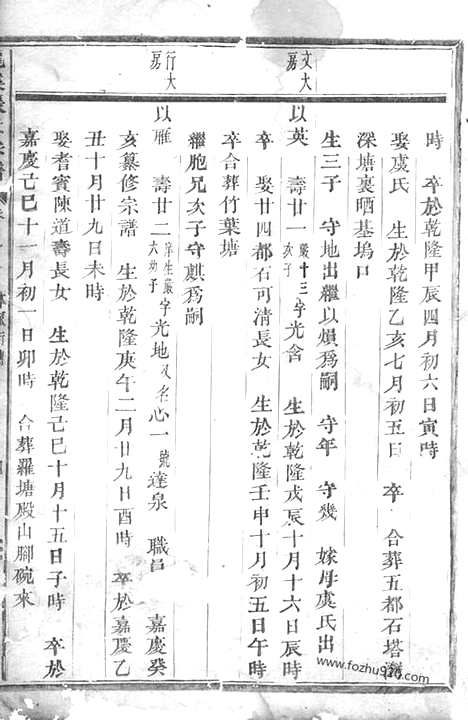 時 卒於乾隆甲辰四月初六日寅時
娶虞氏 生於乾隆乙亥七月初五日 卒 合葬五都石塔
深塘裏晒基塢口
生三子 守地出繼以熉爲嗣 守年 守幾 嫁母虞氏出
文大房
以英 壽廿一 嚴十三子 次子 字光含 生於乾隆戊辰十月十六日辰時
卒 娶廿四都石可清長女 生於乾隆壬申十月初五日午時
卒合葬竹葉塘
繼胞兄次子守麒爲嗣
行大房
以雁 壽廿二 庠生嚴 六幼子 字光地又名心一號達泉 職員 嘉慶癸
亥纂修宗譜 生於乾隆庚午二月廿九日酉時 卒於嘉慶乙
丑十月廿九日未時
娶耆賓陳道壽長女 生於乾隆己巳十月十五日子時 卒於
嘉慶己巳十一月初一日卯時 合葬羅塘殿山腳碗來
www.fozhu920.com